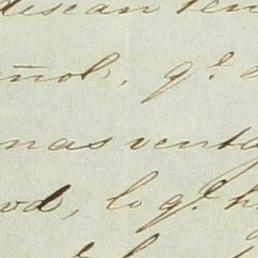 desean ten
añol, q.e
mas venta
vd, lo q.e h